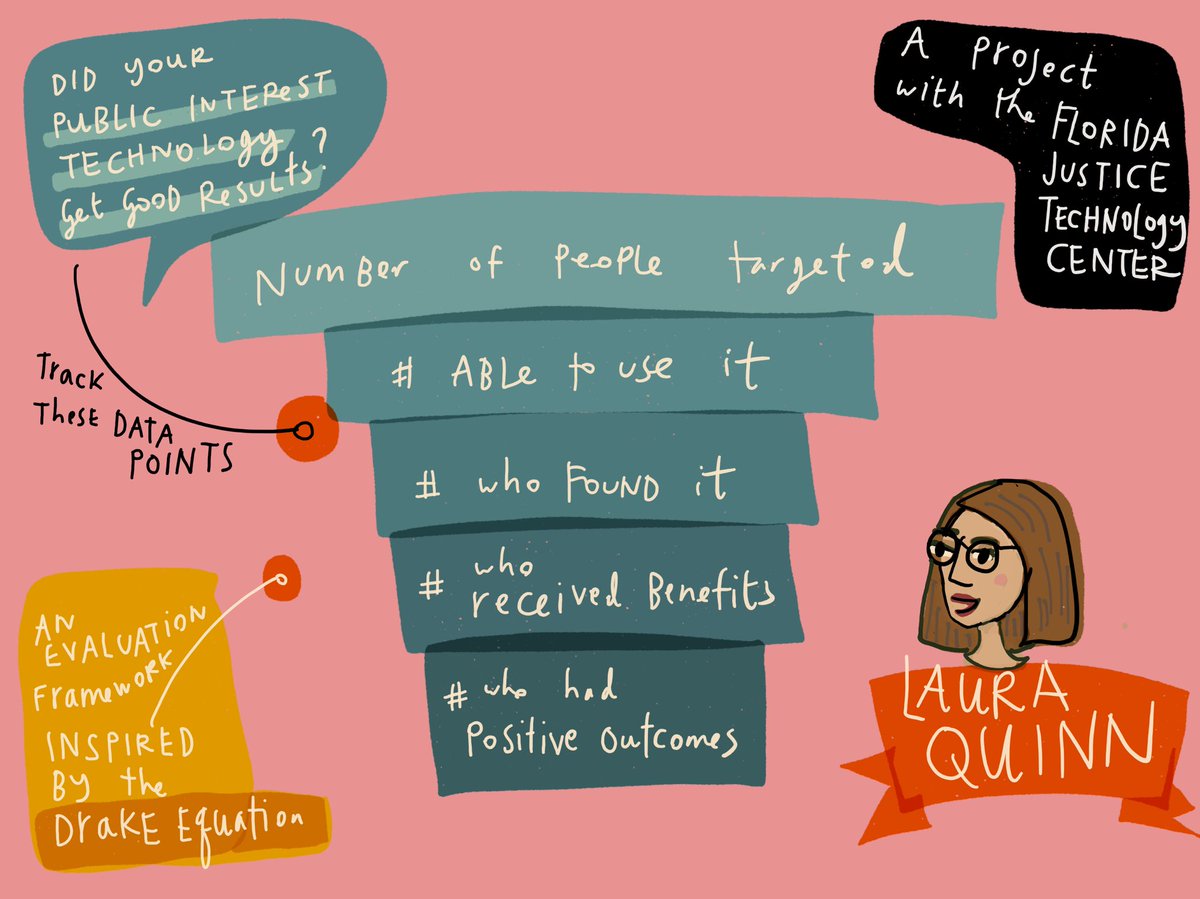 DID YOUR
PUBLIC INTEREST
TECHNOLOGY?
Get GOOD RESULTS.
A PROJECT
with the FLORIDA
JUSTICE
TECHNOLOGY
CENTER
NUMBER of PEOPLE targeted
# ABLE to USE it
# who FOUND it
# who
received Benefits
# who had
Positive OUTCOMES
Track
These DATA
POINTS
AN
EVALUATION
Framework
INSPIRED
BY the
DRAKE Equation
LAURA
QUINN